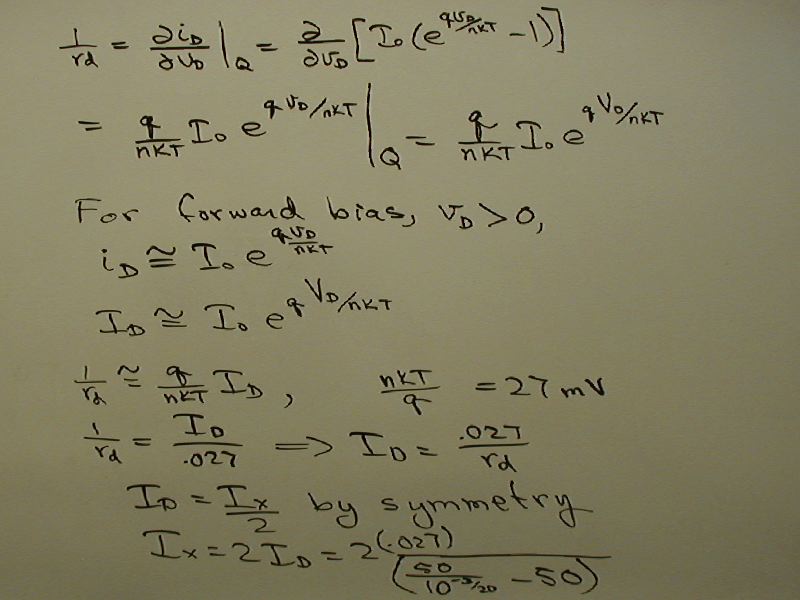 1/rd = ∂iD/∂vD |Q = ∂/∂vD [I₀ (e^(qvD/nKT) - 1)]
= q/nKT I₀ e^(qvD/nKT) |Q = q/nKT I₀ e^(qVD/nKT)
For forward bias, vD > 0,
iD ≅ I₀ e^(qvD/nKT)
ID ≅ I₀ e^(qVD/nKT)
1/rd ≅ q/nKT ID , nKT/q = 27 mV
1/rd = ID/.027 ⟹ ID = .027/rd
ID = Ix/2 by symmetry
Ix = 2ID = 2(.027)/(50/10^(-3/20) - 50)